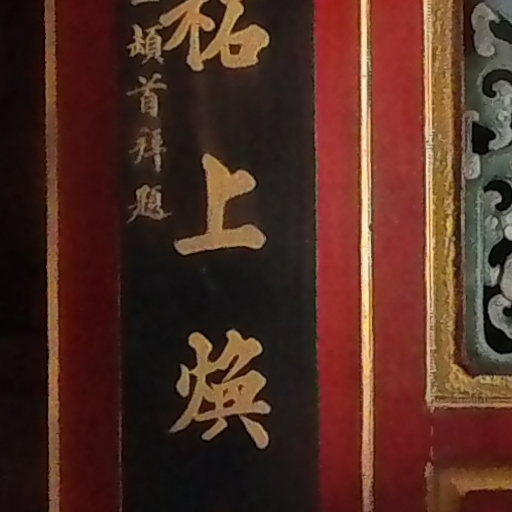 祏上煥
頓首拜題